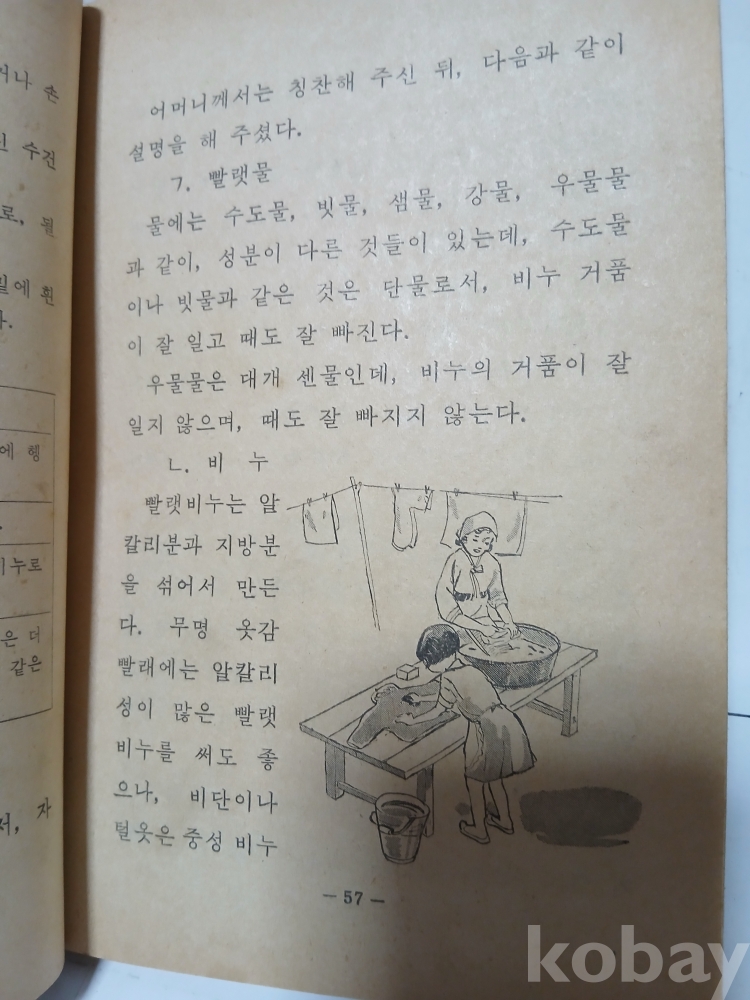 거나 손
수건
로, 뒬
밑에 흰
다.
에 헹
비누로
은 더
같은
서, 자
어머니께서는 칭찬해 주신 뒤, 다음과 같이
설명을 해 주셨다.
ㄱ. 빨랫물
물에는 수도물, 빗물, 샘물, 강물, 우물물
과 같이, 성분이 다른 것들이 있는데, 수도물
이나 빗물과 같은 것은 단물로서, 비누 거품
이 잘 일고 때도 잘 빠진다.
우물물은 대개 센물인데, 비누의 거품이 잘
일지 않으며, 때도 잘 빠지지 않는다.
ㄴ. 비 누
빨랫비누는 알
칼리분과 지방분
을 섞어서 만든
다. 무명 옷감
빨래에는 알칼리
성이 많은 빨랫
비누를 써도 좋
으나, 비단이나
털옷은 중성 비누
— 57 —
kobay